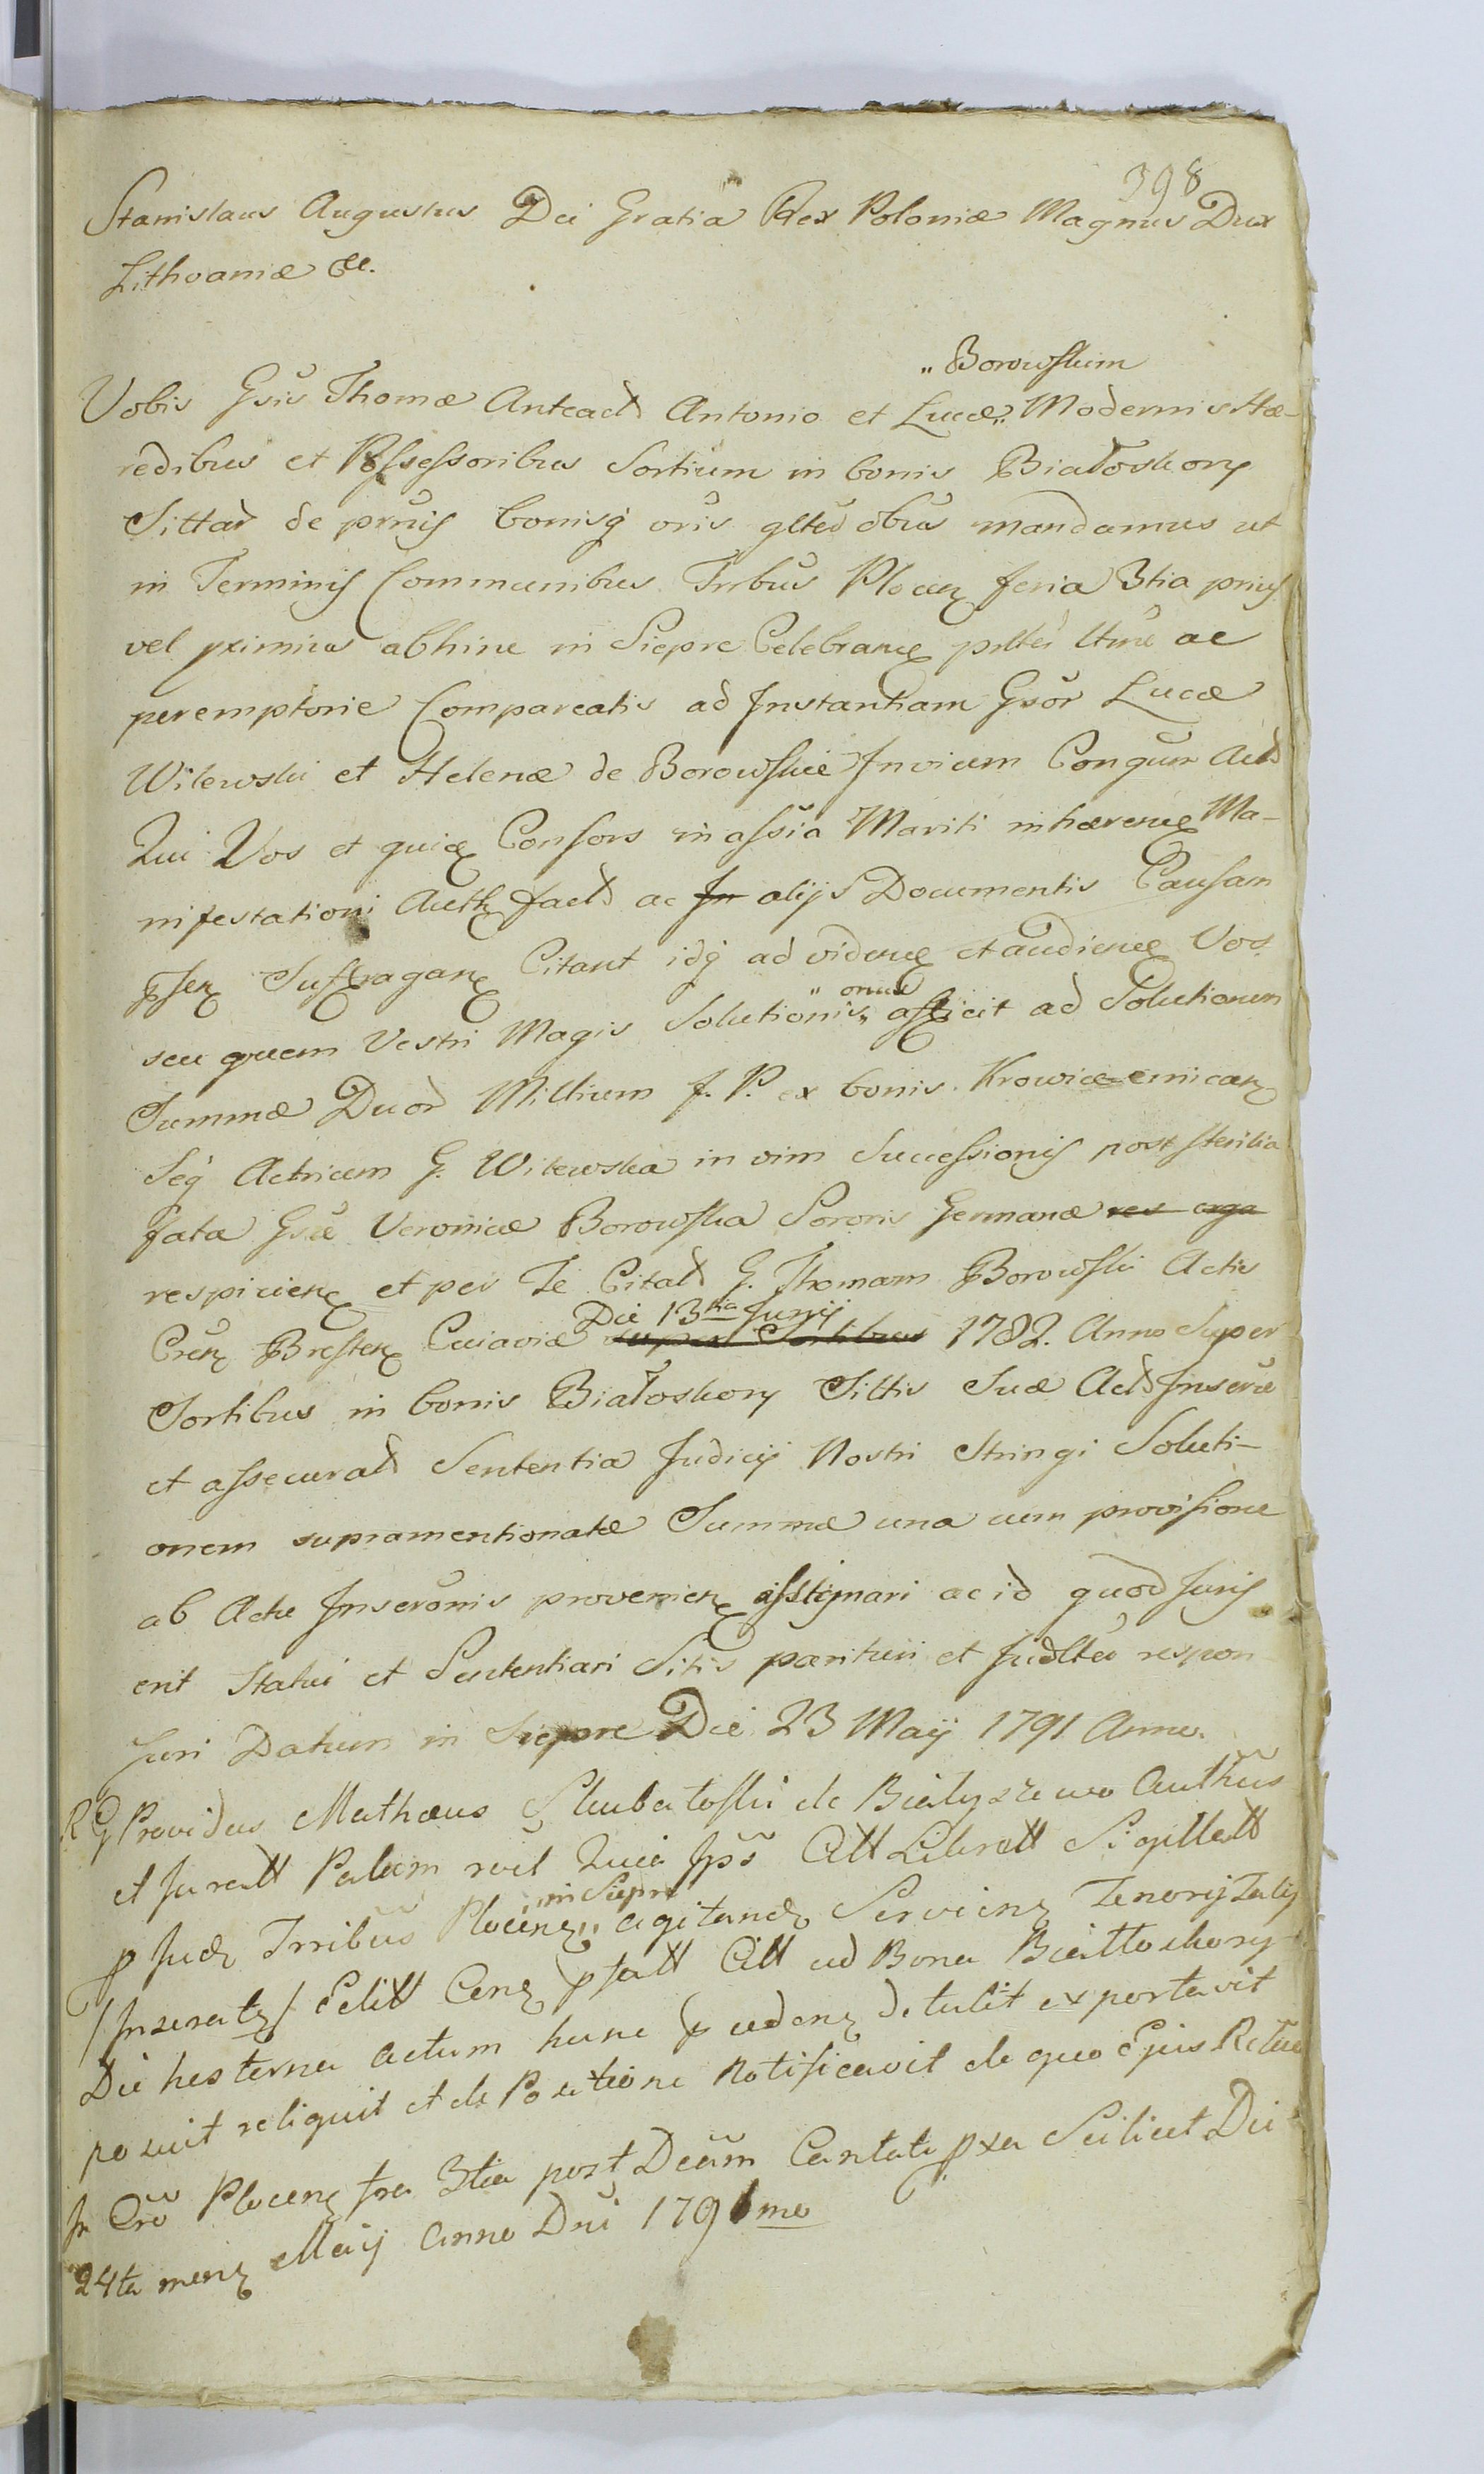 398
Stanislaus Augustus Dei Gratia Rex Poloniæ Magnus Dux
Lithvaniæ &c.
„Borowskim
Vobis Gsis Thomæ Anteact Antonio et Lucæ„ Modernis Hæ-
redibus et Possessoribus Sortium in bonis Białoskory
Sittar de prnis bonisq oris gltus obus mandamus ut
in Terminis Communibus Trrbus Plocen feria 3tia prius
vel pximius abhinc in Sieprc Celebranđ pnltr ltme ac
peremptorie Compareatis ad Instantiam Gsor Lucæ
Wilewski et Helenæ de Borowskie Invicem Congum Act
Qui Vos et quia Consors in assia Mariti inhærenđ Ma-
nifestationi Auth fact ac In alijs Documentis Causam
pssen Suffragan Citant idq ad videnđ et audienđ Vos
„onus
seu quem Vestri Magis Solutionis„ afficit ad Solutionem
Summæ Duor Millium f. P. ex bonis Krowice emican
Seq Actricem G. Wilewska in vim Successionis post sterilia
fata Gsæ Veronicæ Borowska Sororis Germanæ res erga
respicien et per Te Citat G. Thomam Borowski Actis
Die 13tia Junij
Cren Bresten Cuiaviæ super Sortibus 1782. Anno Super
Sortibus in bonis Białoskory Sittis Suæ Act Inscræ
et assecurat Sententia Judicij Nostri Stringi Soluti-
onem supramentionatæ Summæ una cum provisione
ab Actu Inscronis provenien assignari ac id quod Juris
erit Statui et Sententiari Sitis parituri et Judltr respon
suri Datum in Sieprc Die 23 Maij 1791 Anno.
RG Providus Mathæus Skubatoski de Bialyszewo Authus
et Juratt Palam rcit Quia Ipse Citt Librtt Sigillatt
„in Sieprc
p Jud Trribus Plocens„ agitand Servien Tenoris Talis
/Inseratz/ Edit Cenz psatt Citt ad Bona Biattoskory
Die hesterna actum hunc p cedenz detulit exportavit
posuit reliquit et de Positione Notificavit de quo Ejus Retue
In Cro Plocenz fra 3tia post Dcam Cantate pxa Scilicet Die
24ta menz Maij Anno Dni 1791mo